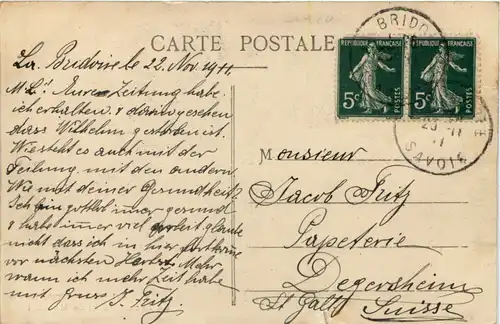 CARTE POSTALE
La Bridoire le 22. Nov. 1911.
M. L! Eure Zeitung habe
ich erhalten & darin gesehen
dass Wilhelm gestorben ist.
Wie steht es auch mit der
Teilung, mit den andern.
Wie mit deiner Gesundheit?
Ich bin gottlob imer gesund
& habe imer viel Arbeit glaube
nicht dass ich in hier
vor nächsten Herbst. Mehr
wann ich mehr Zeit habe
mit Gruss J. Fritz
BRIDO
REPUBLIQUE FRANÇAISE
5c
POSTES
REPUBLIQUE FRANÇAISE
5c
POSTES
SAVOIE
Monsieur
Jacob Fritz
Papeterie
Degersheim
St Gall
Suisse